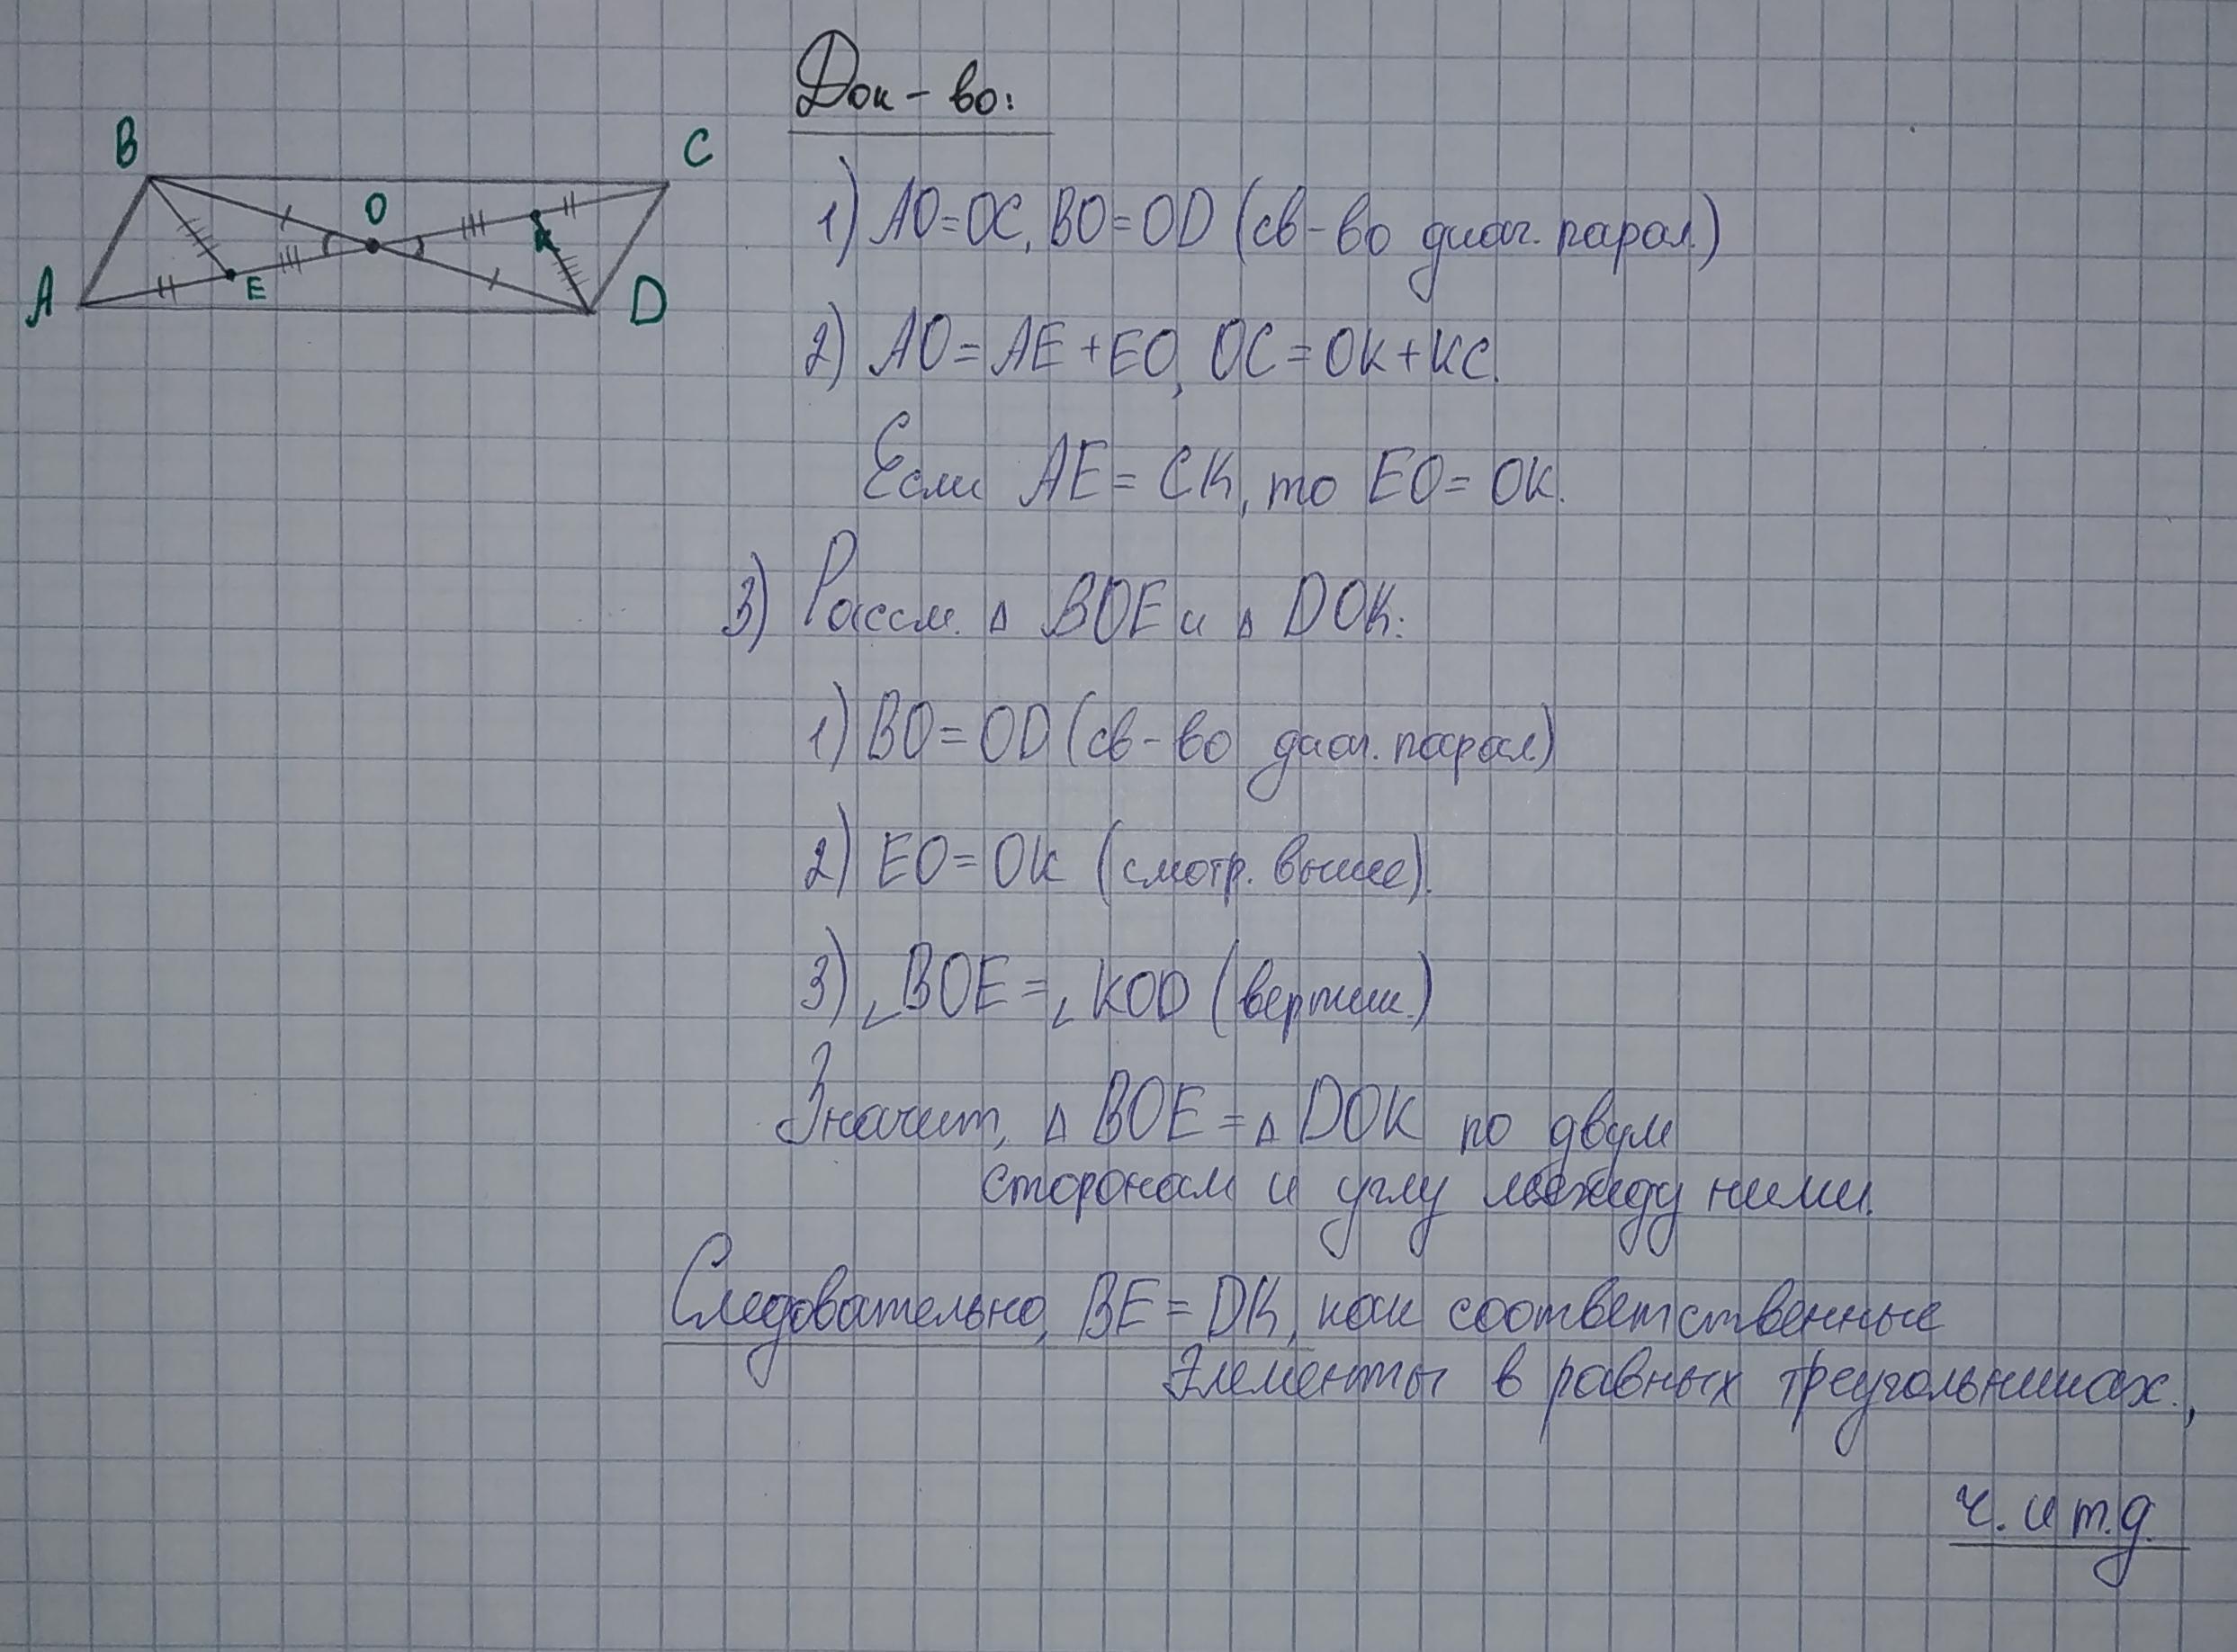 Док-во:
B
C
O
K
E
A
D
1) AO=OC, BO=OD (св-во диаг. парал.)
2) AO=AE+EO, OC=OK+KC.
Если AE=CK, то EO=OK.
3) Рассм. Δ BOE и Δ DOK:
1) BO=OD (св-во диаг. парал.)
2) EO=OK (смотр. выше).
3) ∠BOE=∠KOD (вертик.)
Значит, Δ BOE=Δ DOK по двум
сторонам и углу между ними.
Следовательно, BE=DK, как соответственные
элементы в равных треугольниках.,
ч. и т.д.